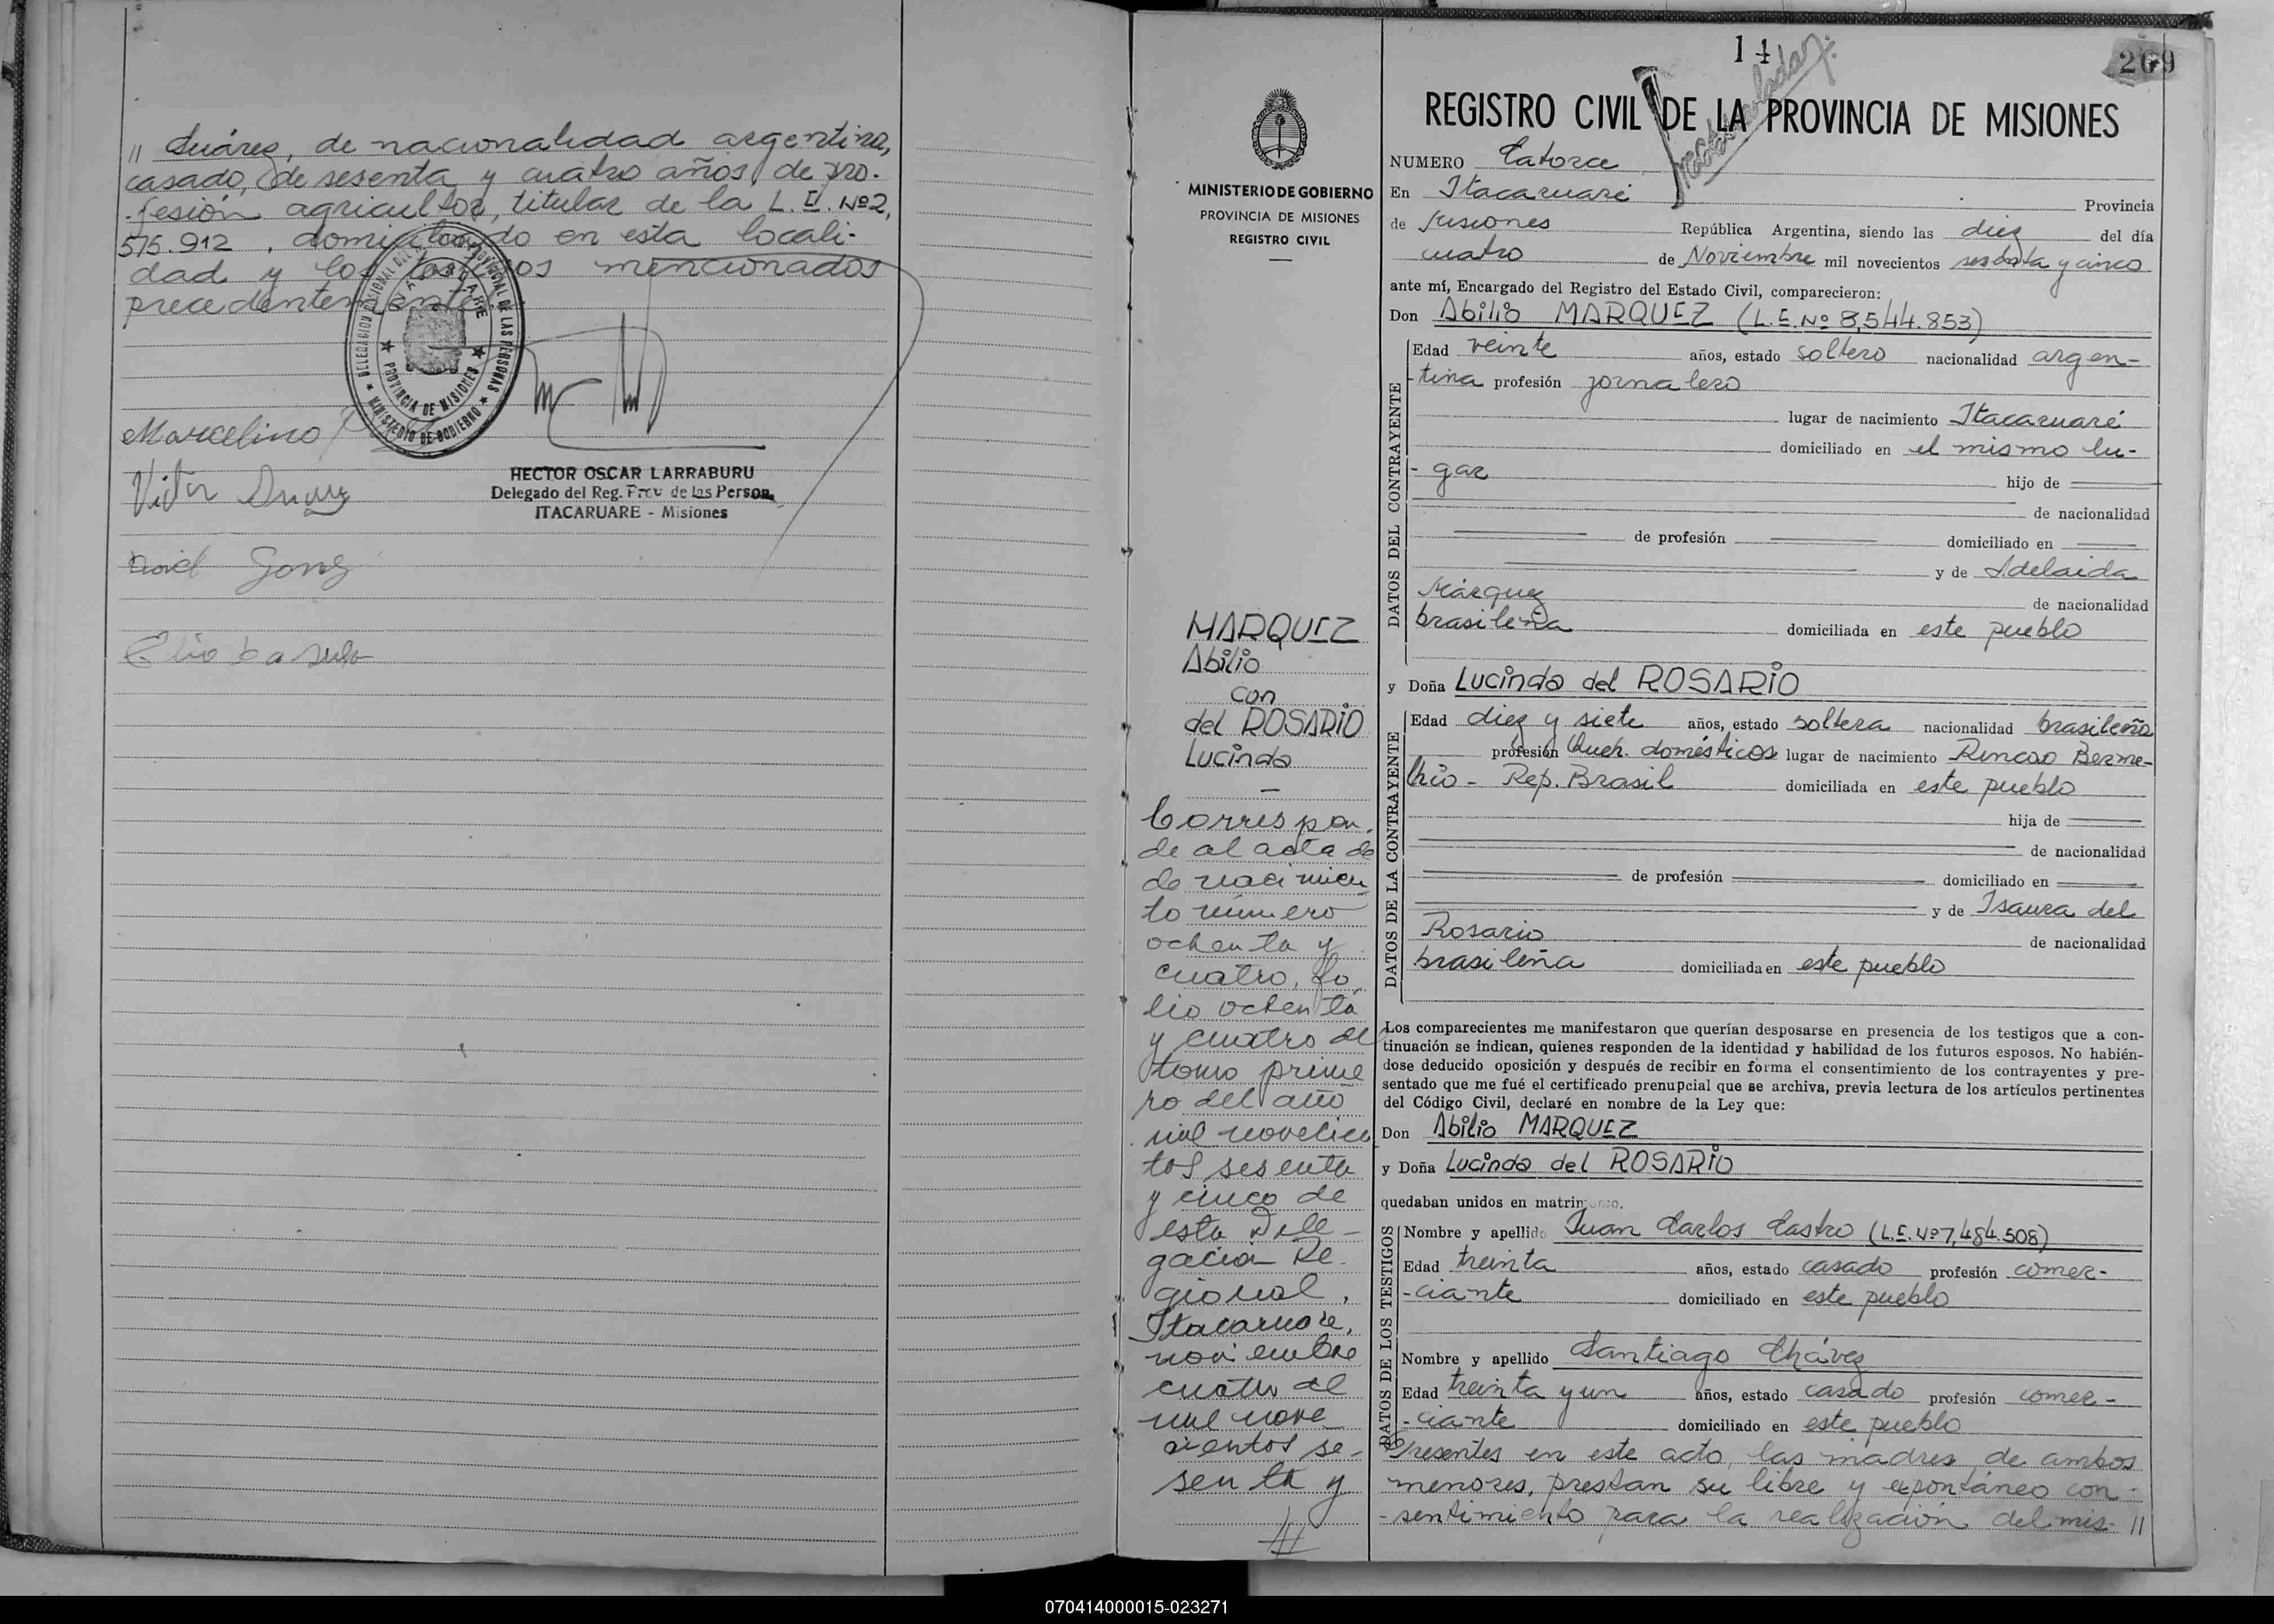 // Suárez, de nacionalidad argentina,
casado, de sesenta y cuatro años, de pro-
-fesión agricultor, titular de la L.E. Nº 2,
575.912, domiciliado en esta locali-
dad y los testigos mencionados
precedentemente
DELEGACION REGIONAL DEL REGISTRO PROVINCIAL DE LAS PERSONAS
★ MINISTERIO DE GOBIERNO ★
ITACARUARE
★ PROVINCIA DE MISIONES ★
Marcelino
HECTOR OSCAR LARRABURU
Delegado del Reg. Prov de las Person.
ITACARUARE - Misiones
Victor
David Gomez
Elio
14
269
MINISTERIO DE GOBIERNO
PROVINCIA DE MISIONES
REGISTRO CIVIL
MARQUEZ
Abilio
con
del ROSARIO
Lucinda
Correspon-
de al acta de
de nacimien
to número
ochenta y
cuatro, fo-
lio ochenta
y cuatro del
tomo prime
ro del año
mil novecien
tos sesenta
y cinco de
esta Dele-
gación Re-
gional.
Itacaruare,
noviembre
cuatro de
mil nove
cientos se-
senta y
//
REGISTRO CIVIL DE LA PROVINCIA DE MISIONES
NUMERO Catorce
En Itacaruaré Provincia
de Misiones República Argentina, siendo las diez del día
cuatro de Noviembre mil novecientos sesenta y cinco
ante mí, Encargado del Registro del Estado Civil, comparecieron:
Don Abilio MARQUEZ (L.E. Nº 8,544.853)
DATOS DEL CONTRAYENTE
Edad veinte años, estado soltero nacionalidad argen-
-tina profesión jornalero
lugar de nacimiento Itacaruaré
domiciliado en el mismo lu-
-gar hijo de
de nacionalidad
de profesión domiciliado en
y de Adelaida
Márquez de nacionalidad
brasileña domiciliada en este pueblo
y Doña Lucinda del ROSARIO
DATOS DE LA CONTRAYENTE
Edad diez y siete años, estado soltera nacionalidad brasileña
profesión Queh. domésticos lugar de nacimiento Rincao Berme-
lhio - Rep. Brasil domiciliada en este pueblo
hija de
de nacionalidad
de profesión domiciliado en
y de Isaura del
Rosario de nacionalidad
brasileña domiciliada en este pueblo
Los comparecientes me manifestaron que querían desposarse en presencia de los testigos que a con-
tinuación se indican, quienes responden de la identidad y habilidad de los futuros esposos. No habién-
dose deducido oposición y después de recibir en forma el consentimiento de los contrayentes y pre-
sentado que me fué el certificado prenupcial que se archiva, previa lectura de los artículos pertinentes
del Código Civil, declaré en nombre de la Ley que:
Don Abilio MARQUEZ
y Doña Lucinda del ROSARIO
quedaban unidos en matrimonio.
DATOS DE LOS TESTIGOS
Nombre y apellido Juan Carlos Castro (L.E. Nº 7,484.508)
Edad treinta años, estado casado profesión comer-
-ciante domiciliado en este pueblo
Nombre y apellido Santiago Chávez
Edad treinta y un años, estado casado profesión comer-
-ciante domiciliado en este pueblo
Presentes en este acto, las madres de ambos
menores, prestan su libre y espontáneo con-
-sentimiento para la realización del mis- //
070414000015-023271